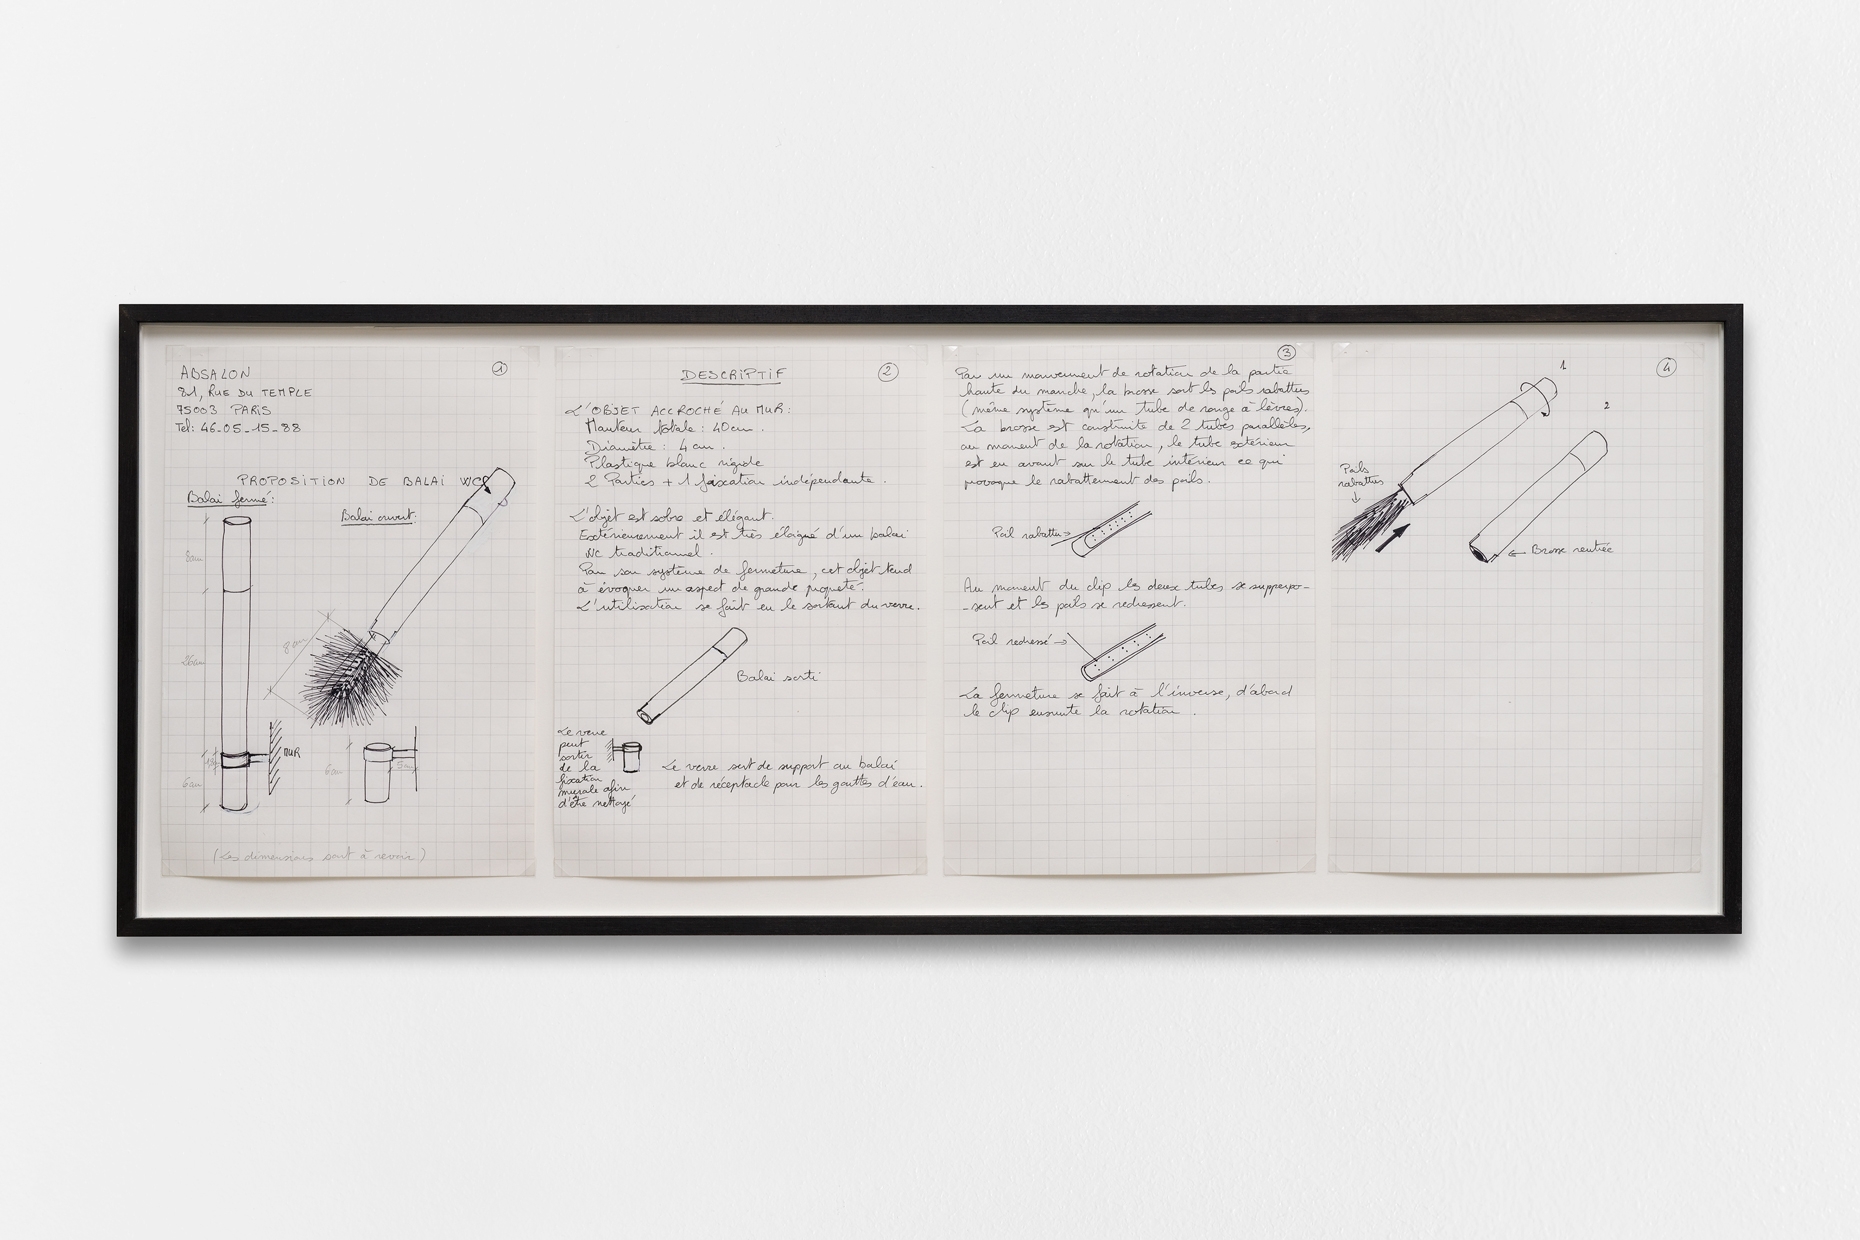 ①
ABSALON
81, RUE DU TEMPLE
75003 PARIS
Tél: 46-05-15-88
PROPOSITION DE BALAI WC
Balai fermé:
Balai ouvert:
8cm
26cm
8cm
MUR
6cm
6cm
5cm
(Les dimensions sont à revoir)
②
DESCRIPTIF
L'OBJET ACCROCHÉ AU MUR:
Hauteur totale: 40cm.
Diamètre: 4cm.
Plastique blanc rigide
2 Parties + 1 fixation indépendante.
L'objet est sobre et élégant.
Extérieurement il est très éloigné d'un balai
WC traditionnel.
Par son système de fermeture, cet objet tend
à évoquer un aspect de grande propreté.
L'utilisation se fait en le sortant du verre.
Balai sorti
Le verre
peut
sortir
de la
fixation
murale afin
d'être nettoyé
Le verre sert de support au balai
et de réceptacle pour les gouttes d'eau.
③
Par un mouvement de rotation de la partie
haute du manche, la brosse sort les poils rabattus
(même système qu'un tube de rouge à lèvres).
La brosse est construite de 2 tubes parallèles,
au moment de la rotation, le tube extérieur
est en avant sur le tube intérieur ce qui
provoque le rabattement des poils.
Poil rabattu
Au moment du clip les deux tubes se supperpo-
-sent et les poils se redressent.
Poil redressé
La fermeture se fait à l'inverse, d'abord
le clip ensuite la rotation.
④
1
2
Poils
rabattus
Brosse rentrée